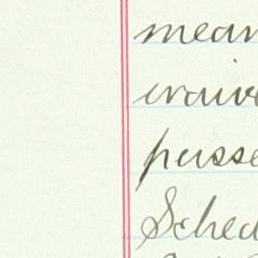 mean
waive
posse
Sched